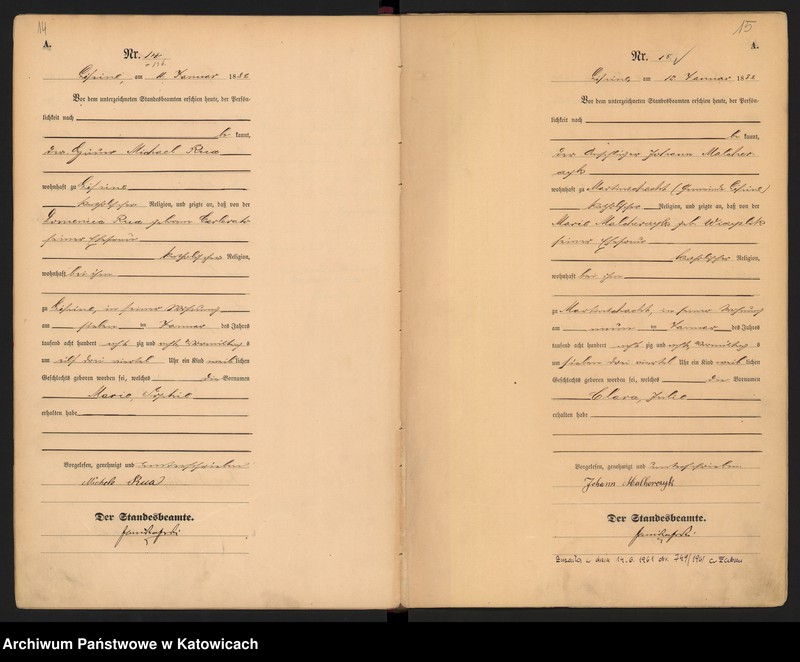 14
A.
Nr. 14
am 11. Januar 188
Vor dem unterzeichneten Standesbeamten erschien heute, der Persön-
lichkeit nach
be kannt,
der Michael Rua
wohnhaft zu
katholischer Religion, und zeigte an, daß von der
Domenica Rua geboren
seiner Ehefrau
katholischer Religion,
wohnhaft bei ihm
zu in seiner Wohnung
am sieben ten Januar des Jahres
tausend acht hundert acht zig und Vormittag s
um elf drei viertel Uhr ein Kind weib lichen
Geschlechts geboren worden sei, welches die Vornamen
Marie, Sophie
erhalten habe
Vorgelesen, genehmigt und unterschrieben
Michele Rua
Der Standesbeamte.
15
A.
Nr. 15
am 12. Januar 188
Vor dem unterzeichneten Standesbeamten erschien heute, der Persön-
lichkeit nach
be kannt,
der Johann Malcher
czyk
wohnhaft zu Martinschacht (Gemeinde
katholischer Religion, und zeigte an, daß von der
Marie Malcherczyk geb.
seiner Ehefrau
katholischer Religion,
wohnhaft bei ihm
zu Martinschacht, in seiner Wohnung
am neun ten Januar des Jahres
tausend acht hundert acht zig und Vormittag s
um sieben drei viertel Uhr ein Kind weib lichen
Geschlechts geboren worden sei, welches die Vornamen
Clara, Julie
erhalten habe
Vorgelesen, genehmigt und unterschrieben
Johann Malherczyk
Der Standesbeamte.
dnia 14.6.1961 749/1961
Archiwum Państwowe w Katowicach